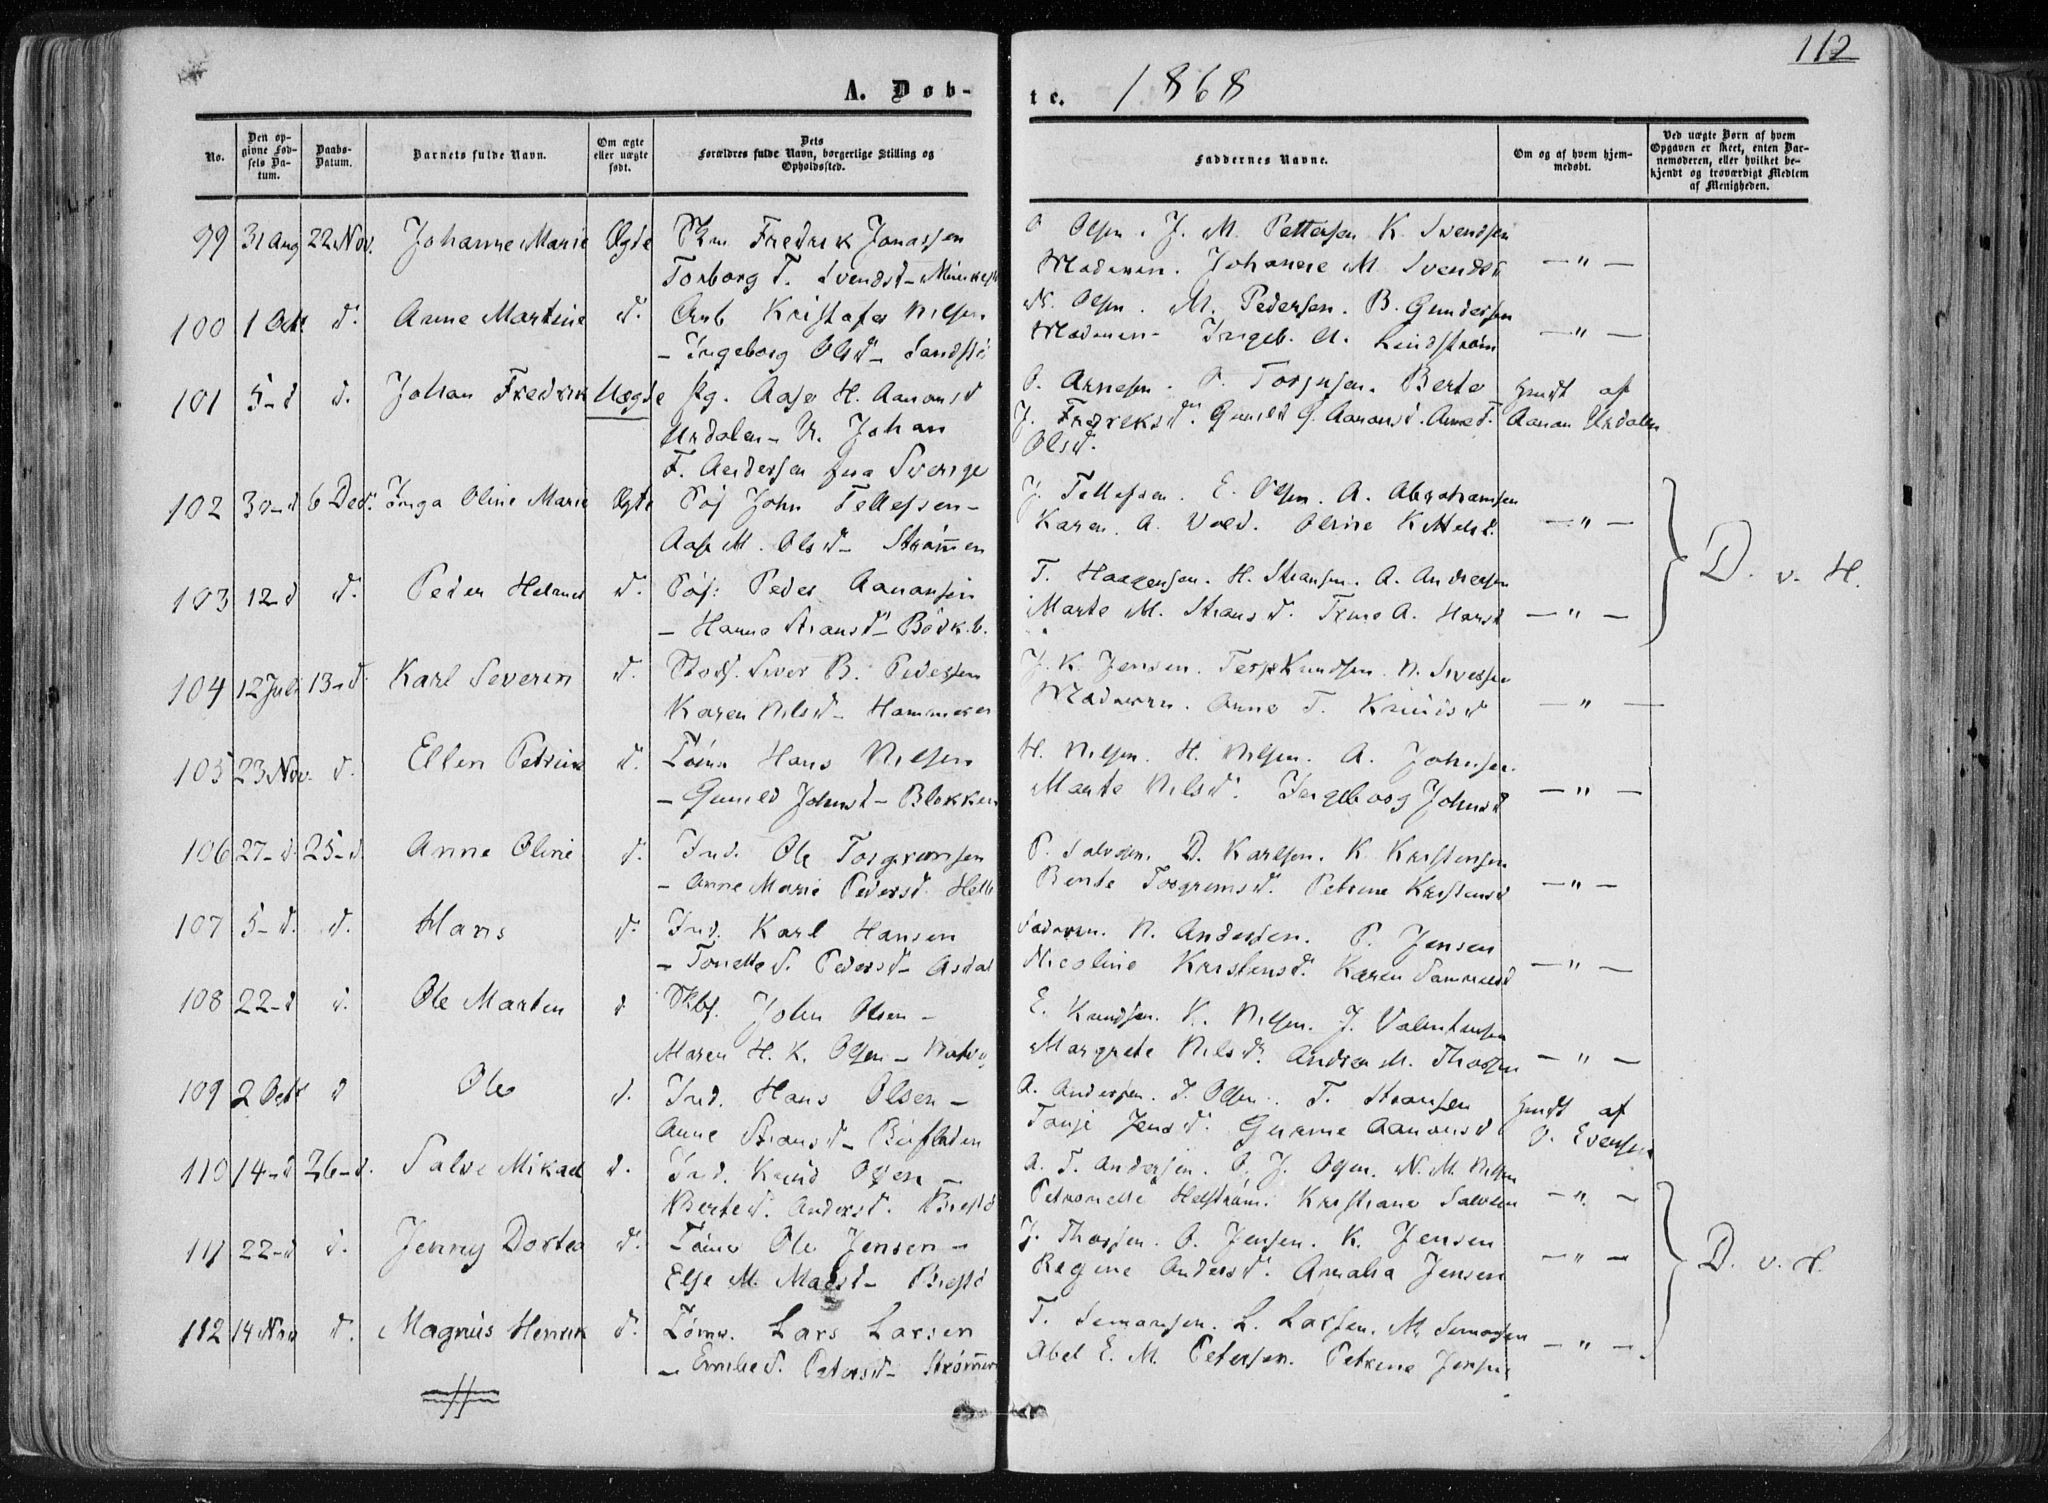 112
A. Døb-
te. 1868
No.
Den op-
givne Fød-
sels Da-
tum.
Daabs-
Datum.
Barnets fulde Navn.
Om ægte
eller uægte
født.
Dets
Forældres fulde Navn, borgerlige Stilling og
Opholdssted.
Faddernes Navne.
Om og af hvem hjem-
medøbt.
Ved uægte Børn af hvem
Opgaven er skeet, enten Bar-
nemoderen, eller hvilket be-
kjendt og troværdigt Medlem
af Menigheden.
99 31 Aug 22 Nov. Johanne Marie Ægte Skm Fredrik Jonassen
Torborg T. Svendsd -
O Olsen. J. M. Pettersen K. Svendsen
Moderen. Johanne M. Svendsd — " —
100 1 Oct d. Anne Martine d. Arb Kristofer Nilsen
- Ingeborg Olsd - Sandstø
N. Olsen. M. Pedersen. B. Gundersen
Moderen - Ingeb. A. Lindstrøm — " —
101 5 - d d. Johan Fredrik Uægte Pg. Aase H. Aanonsd
Urdalen - U. Johan
F. Andersen fra Sverige
O. Arnesen. O. Torjusen. Berte
J. Fredreksd. Gunild G. Aanonsd. Anne T.
Olsd.
Hmdt af
Aanon Urdalen
102 30 - d 6 Dec. Inga Oline Marie Ægte Søf John Tellefsen -
Aase M. Olsd - Strømmen
J. Tellefsen. E. Olsen. A. Abrahamsen
Karen A. Vold. Oline Kittelsd. — " —
103 12 - d d. Peder Helmer d. Søf: Peder Aanonsen
- Hanna Stiansd - Bødk.b.
T. Haagensen. H. Stiansen. A. Andersen
Marte M. Stiansd. Trine A. Hansd — " —
D. v. H.
104 12 Juli 13 - d. Karl Severin d. Siver B. Pedersen
Karen Nilsd - Hammeren
J. K. Jensen. Terje Knudsen. N. Siversen
Moderen. Anne T. Knudsd — " —
105 23 Nov. d. Ellen Petrine d. Tømm Hans Nilsen
- Gunild Johnsd - Blokken
H. Nilsen. H. Nilsen. A. Johnsen.
Marte Nilsd. Ingeborg Johnsd — " —
106 27 - d. 25 - d. Anne Oline d. Ind. Ole Torgrimsen
- Anne Marie Pedersd. Helle
P. Salvesen. D. Karlsen. K. Kristensen
Bente Torgrimsd. Petrine Kristensd — " —
107 5 - d. d. Hans d. Ind. Karl Hansen
- Tonette S. Pedersd - Asdal
Faderen. N. Andersen. P. Jensen
Nicoline Kristensd. Karen Sammuelsd — " —
108 22 - d d. Ole Martin d Skbf. John Olsen -
Maren H. K. Olsen -
E. Knudsen. K. Nilsen. J. Valentinsen
Margrete Nilsd. Andrea M. Thorsen — " —
109 2 Octr d Ole d. Ind. Hans Olsen -
Anne Stiansd -
A. Andersen. J. Olsen. T. Stiansen
Tonje Jensd. Gurine Aanonsd
Hmdt af
O. Evensen
110 14 - d 26 - d. Salve Mikael d. Ind. Knud Olsen -
Berte d. Andersd. Brestø
A. T. Andersen. O. J. Olsen. N. M. Nilsen
Petronelle Helstrøm. Kristiane Salvesen — " —
111 22 - d d. Jenny Dortea d. Tømr Ole Jensen -
Else M. Madsd - Brestø
J. Thorsen. O. Jensen. K. Jensen
Regine Andersd. Amalia Jensen — " —
D. v. H.
112 14 Nov d. Magnus Henrik d. Tømr. Lars Larsen
- Emilie d. Petersd - Strømmen
T. Simonsen. L. Larsen. M. Simonsen
Abel E. M. Petersen. Petrine Jensen — " —